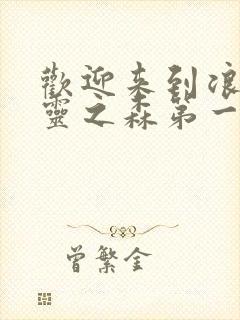 歡迎来到浪
靈之森第一
曾繁金